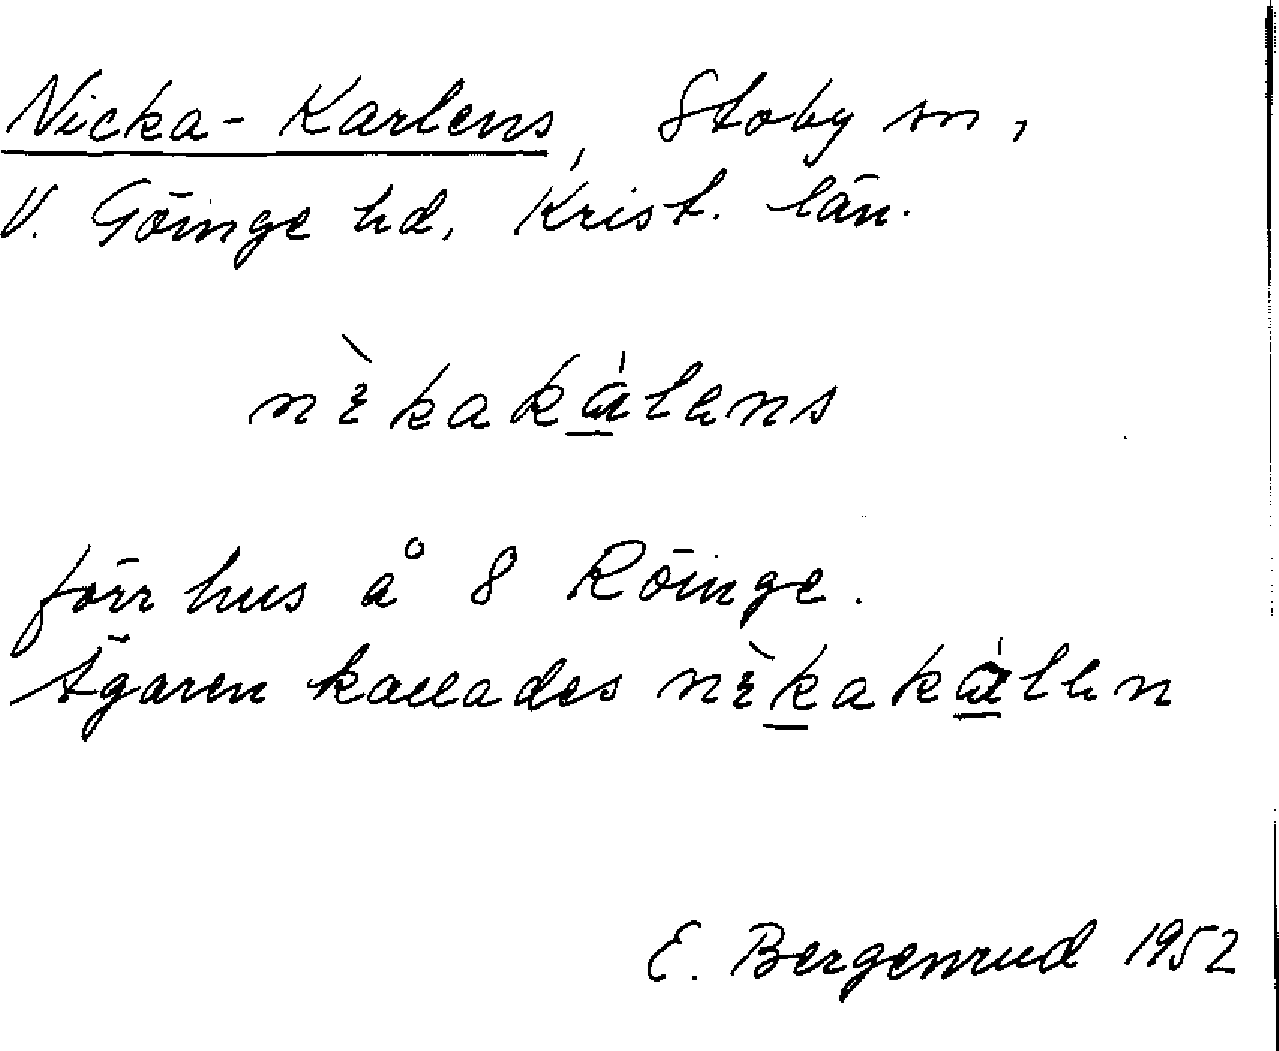 Nicka-Karlens, Stoby sn,
V. Göinge hd, Krist. län.
nèkakálens
förr hus å 8 Röinge.
Ägaren kallades nèkakálen
E. Bergenrud 1952